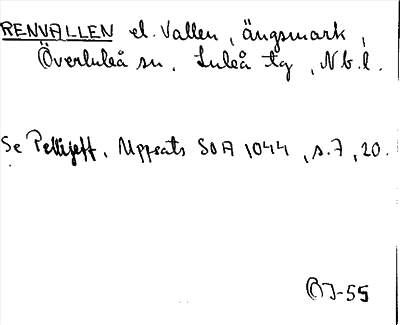 RENVALLEN el. Vallen, ängsmark,
Överluleå sn. Luleå tg, Nb.l.
Se Pellijeff, Uppsats SOA 1044, s.7, 20.
ÖJ-55